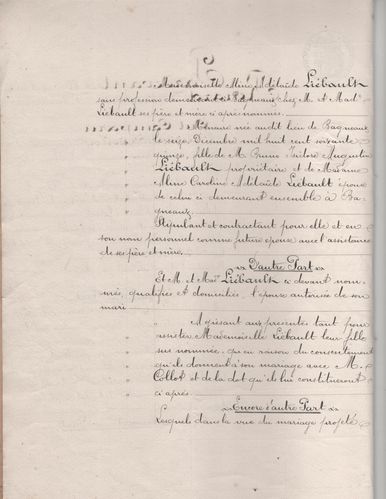 Mademoiselle Aline Adélaïde Liébault
sans profession demeurant à Bagneaux chez M. et Made
Liébault ses père et mère ci après nommés.
Mineure née audit lieu de Bagneaux
le seize Décembre mil huit cent soixante
quinze, fille de M. Bruno Isidore Augustin
Liébault propriétaire et de Madame
Aline Caroline Adélaïde Liébault épouse
de celui ci demeurant ensemble à Ba-
gneaux.
Stipulant et contractant pour elle et en
son nom personnel comme future épouse avec l'assistance
de ses père et mère.
D'autre Part
Et M. et Mad. Liébault ci devant nom-
més, qualifiés et domiciliés, l'épouse autorisée de son
mari
Agissant aux présentes tant pour
assister Mademoiselle Liébault leur fille
sus nommée, qu'en raison du consentement
qu'ils donnent à son mariage avec M.
Collot et de la dot qu'ils lui constitueront
ci après.
Encore d'autre Part
Lesquels dans la vue du mariage projeté